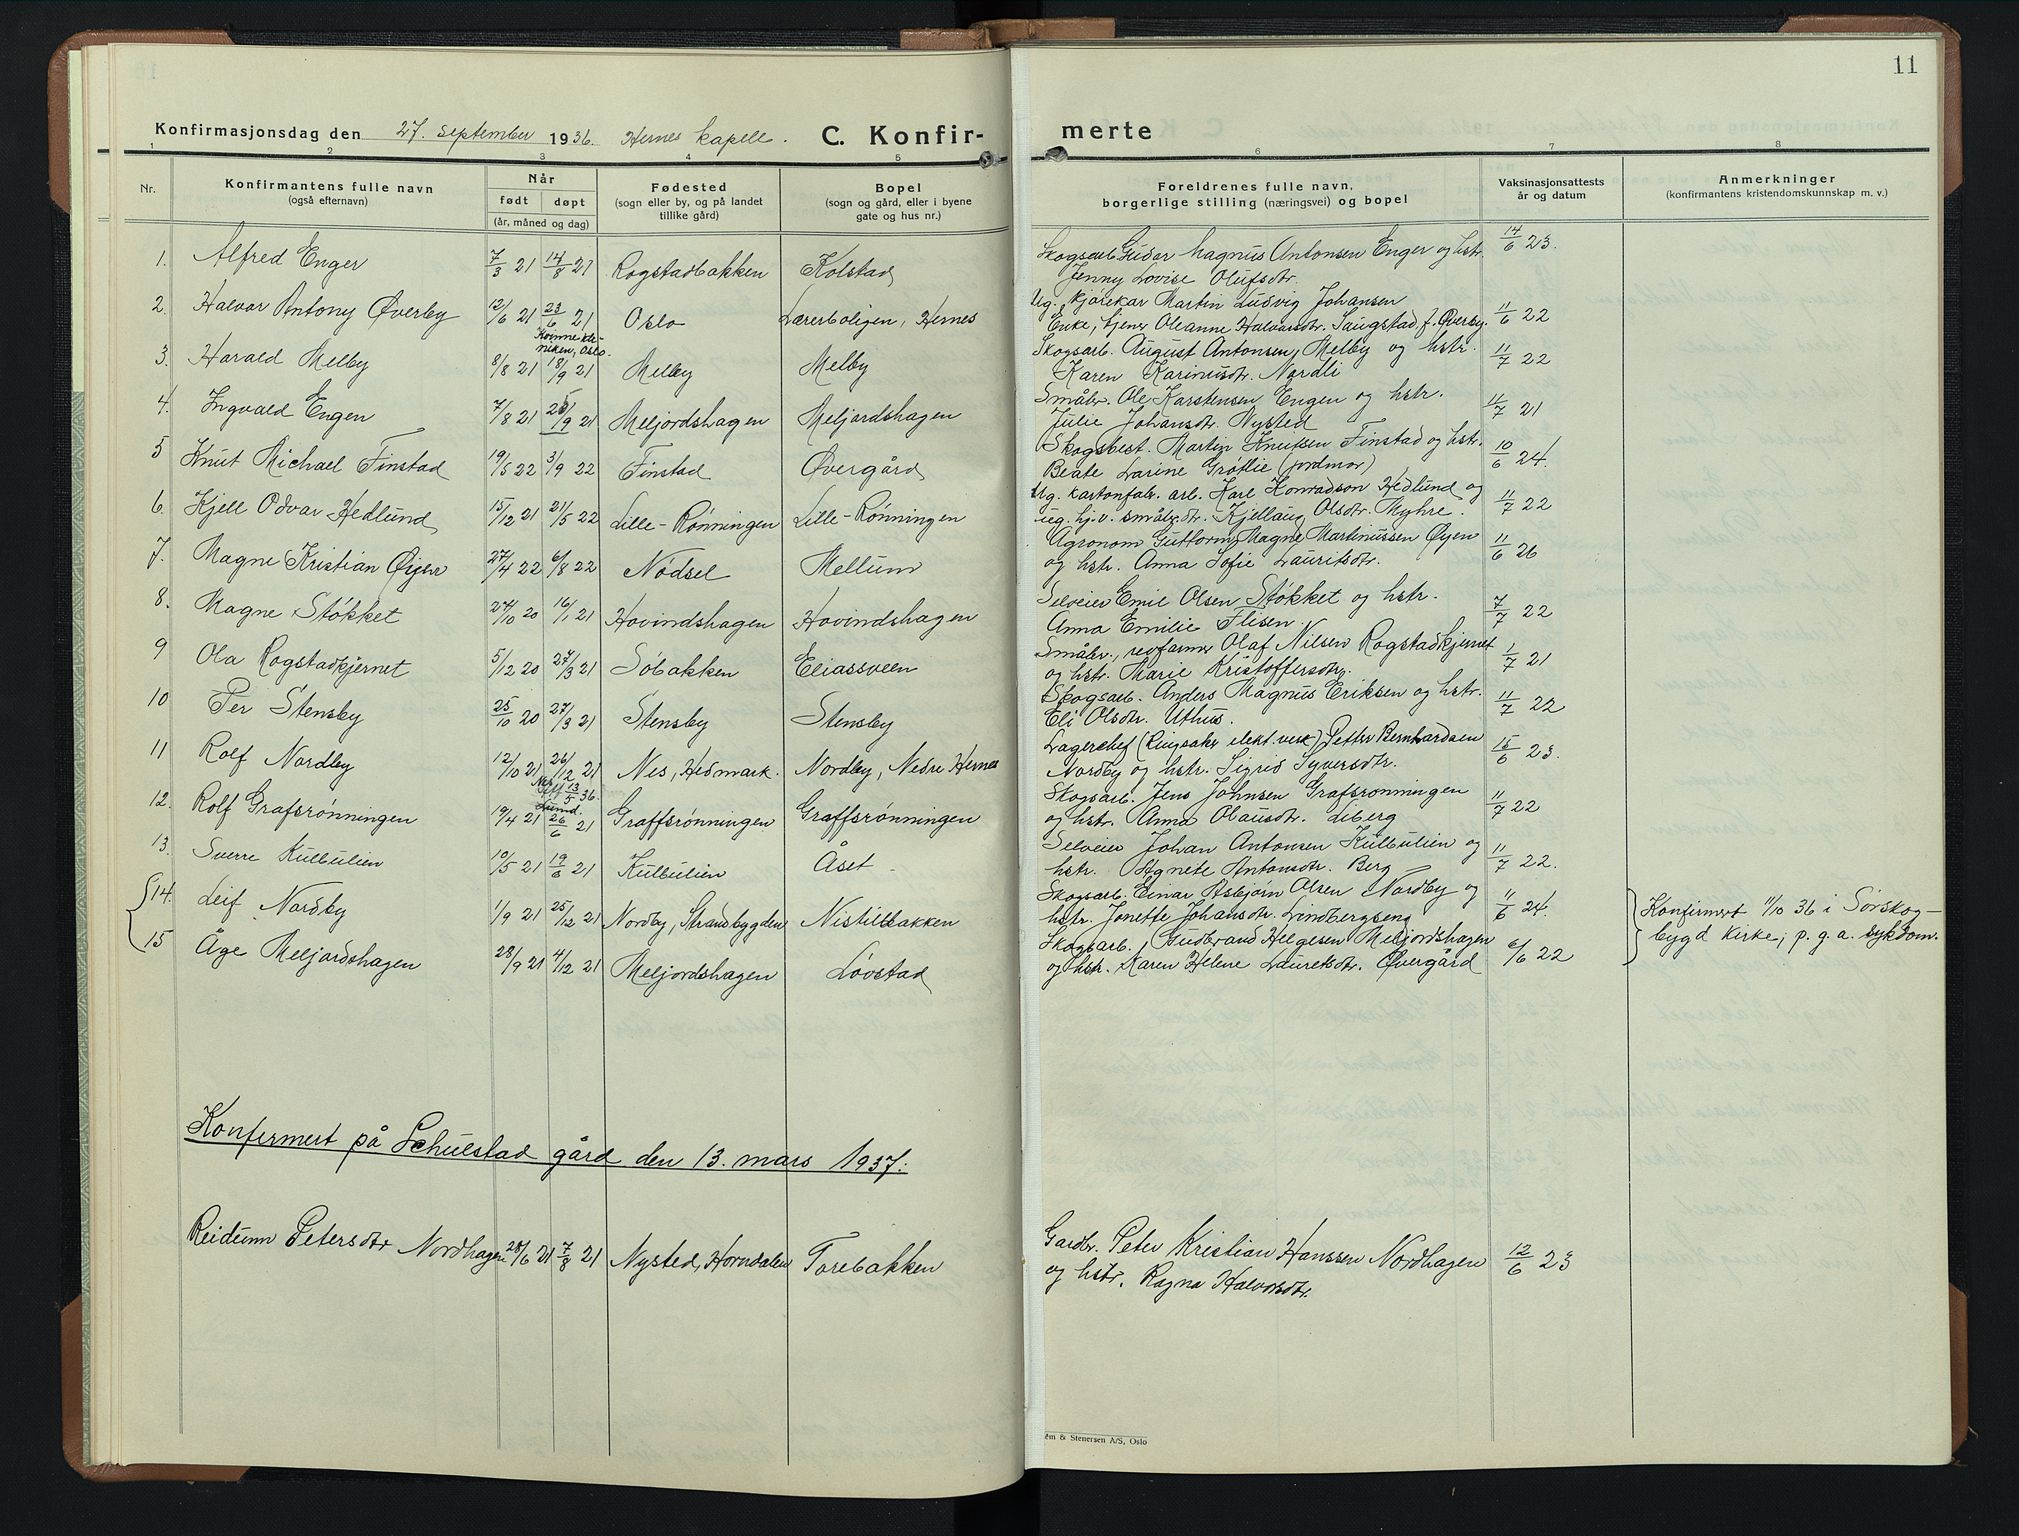 11
Konfirmasjonsdag den 27. september 1936. Hernes kapell. C. Konfir-
merte
1 2 3 4 5
6 7 8
Nr.
Konfirmantens fulle navn
(også efternavn)
Når
født døpt
(år, måned og dag)
Fødested
(sogn eller by, og på landet
tillike gård)
Bopel
(sogn og gård, eller i byene
gate og hus nr.)
Foreldrenes fulle navn,
borgerlige stilling (næringsvei) og bopel
Vaksinasjonsattests
år og datum
Anmerkninger
(konfirmantens kristendomskunnskap m. v.)
1. Alfred Enger 7/3 21 14/8 21 Rogstadbakken Kolstad
Skogsarb. Gudar Magnus Antonsen Enger og hstr. 14/6 23.
Jenny Lovise Olufsdtr.
2. Halvar Antony Øverby 12/6 21 23/6 21 Oslo Lærerboligen, Hernes
Kvinnekli-
niken, Oslo.
Ug. kjørekar Martin Ludvig Johansen
Enke, tjener Oleanne Halvarsdtr. Saugstad, f. Øverby. 11/6 22
3. Harald Melby 8/8 21 18/9 21 Melby Melby
Skogsarb. August Antonsen, Melby og hstr. 11/7 22
Karen Karinusdtr. Nordli
4. Ingvald Engen 7/8 21 25/9 21 Meljordshagen Meljordshagen
Småbr. Ole Karstensen Engen og hstr. 11/7 21
Julie Johansdtr. Nysted
5 Knut Michael Finstad 19/5 22 3/9 22 Finstad Øvergård
Skogsbest. Martin Knutsen Finstad og hstr. 10/6 24.
Beate Larine Grøtlie (jordmor)
6. Kjell Odvar Hedlund 15/12 21 21/5 22 Lille-Rønningen Lille-Rønningen
Ug. kartonfabr. arb. Karl Konradson Hedlund og 11/7 22
ug. hj.v. småbrdtr. Kjellaug Olsdtr. Myhre.
7. Magne Kristian Øyen 27/4 22 6/8 22 Nødsel Mellum
Agronom Guttorm Magne Martinussen Øyen 11/6 26
og hstr. Anna Sofie Lauritsdtr.
8. Magne Støkket 24/10 20 16/1 21 Hovindshagen Hovindshagen
Selveier Emil Olsen Støkket og hstr. 7/7 22
Anna Emilie Flisen.
9 Ola Rogstadkjernet 5/12 20 27/3 21 Søbakken Eliassveen
Småbr., revfarmer Olaf Nilsen Rogstadkjernet 1/7 21
og hstr. Marie Kristoffersdtr.
10 Per Stensby 25/10 20 27/3 21 Stensby Stensby
Skogsarb. Anders Magnus Eriksen og hstr. 11/7 22
Eli Olsdtr. Uthus.
11 Rolf Nordby 12/10 21 26/12 21 Nes, Hedmark. Nordby, Nedre Hernes
Lagerchef (Ringsaker elekt. verk) Petter Bernhardsen 15/6 23.
Nordby og hstr. Sigrid Syversdtr.
12. Rolf Grafsrønningen 19/4 21 26/6 21 Graffsrønningen Graffsrønningen
13/5 36.
Skogsarb. Jens Johnsen Grafsrønningen 11/7 22
og hstr. Anna Olausdtr. Liberg
13. Sverre Kulbulien 10/5 21 19/6 21 Kulbulien Åset
Selveier Johan Antonsen Kulbulien og 11/7 22.
hstr. Agnete Antonsdtr. Berg
14. Leif Nordby 1/9 21 25/12 21 Nordby, Strandbygden Nistilbakken
Skogsarb. Einar Asbjørn Olsen Nordby og 11/6 24.
hstr. Jonette Johansdtr. Lindbergseng
15 Åge Meljordshagen 28/9 21 4/12 21 Meljordshagen Løvstad
Skogsarb. Gudbrand Helgesen Meljordshagen 6/6 22
og hstr. Karen Helene Lauretsdtr. Øvergård
Konfirmert 11/10 36 i Sørskog-
bygd kirke, p. g. a. sykdom.
Konfirmert på Schulstad gård den 13. mars 1937.
Reidunn Petersdtr Nordhagen 28/6 21 7/8 21 Nysted, Horndalen Torebakken
Gardbr. Peter Kristian Hanssen Nordhagen 12/6 23
og hstr. Ragna Halvorsdtr.
& Stenersen A/S, Oslo